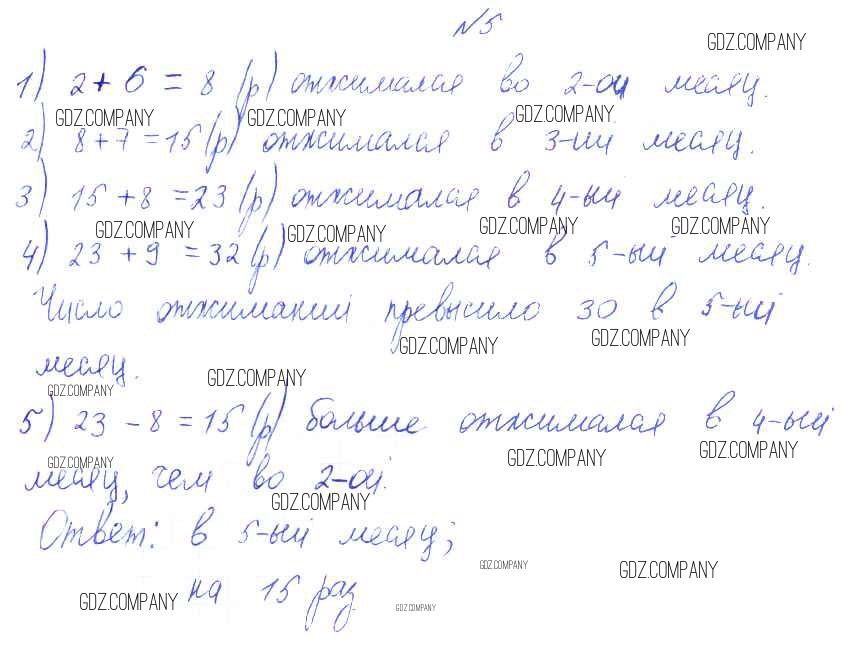 №5
GDZ.COMPANY
1) 2 + 6 = 8 (р) отжимался во 2-ой месяц.
GDZ.COMPANY GDZ.COMPANY GDZ.COMPANY
2) 8 + 7 = 15 (р) отжимался в 3-ий месяц.
3) 15 + 8 = 23 (р) отжимался в 4-ый месяц.
GDZ.COMPANY GDZ.COMPANY GDZ.COMPANY GDZ.COMPANY
4) 23 + 9 = 32 (р) отжимался в 5-ый месяц.
Число отжиманий превысило 30 в 5-ый
GDZ.COMPANY GDZ.COMPANY
месяц.
GDZ.COMPANY GDZ.COMPANY
5) 23 - 8 = 15 (р) больше отжимался в 4-ый
GDZ.COMPANY GDZ.COMPANY GDZ.COMPANY
месяц, чем во 2-ой.
GDZ.COMPANY
Ответ: в 5-ый месяц;
GDZ.COMPANY GDZ.COMPANY
на 15 раз
GDZ.COMPANY GDZ.COMPANY